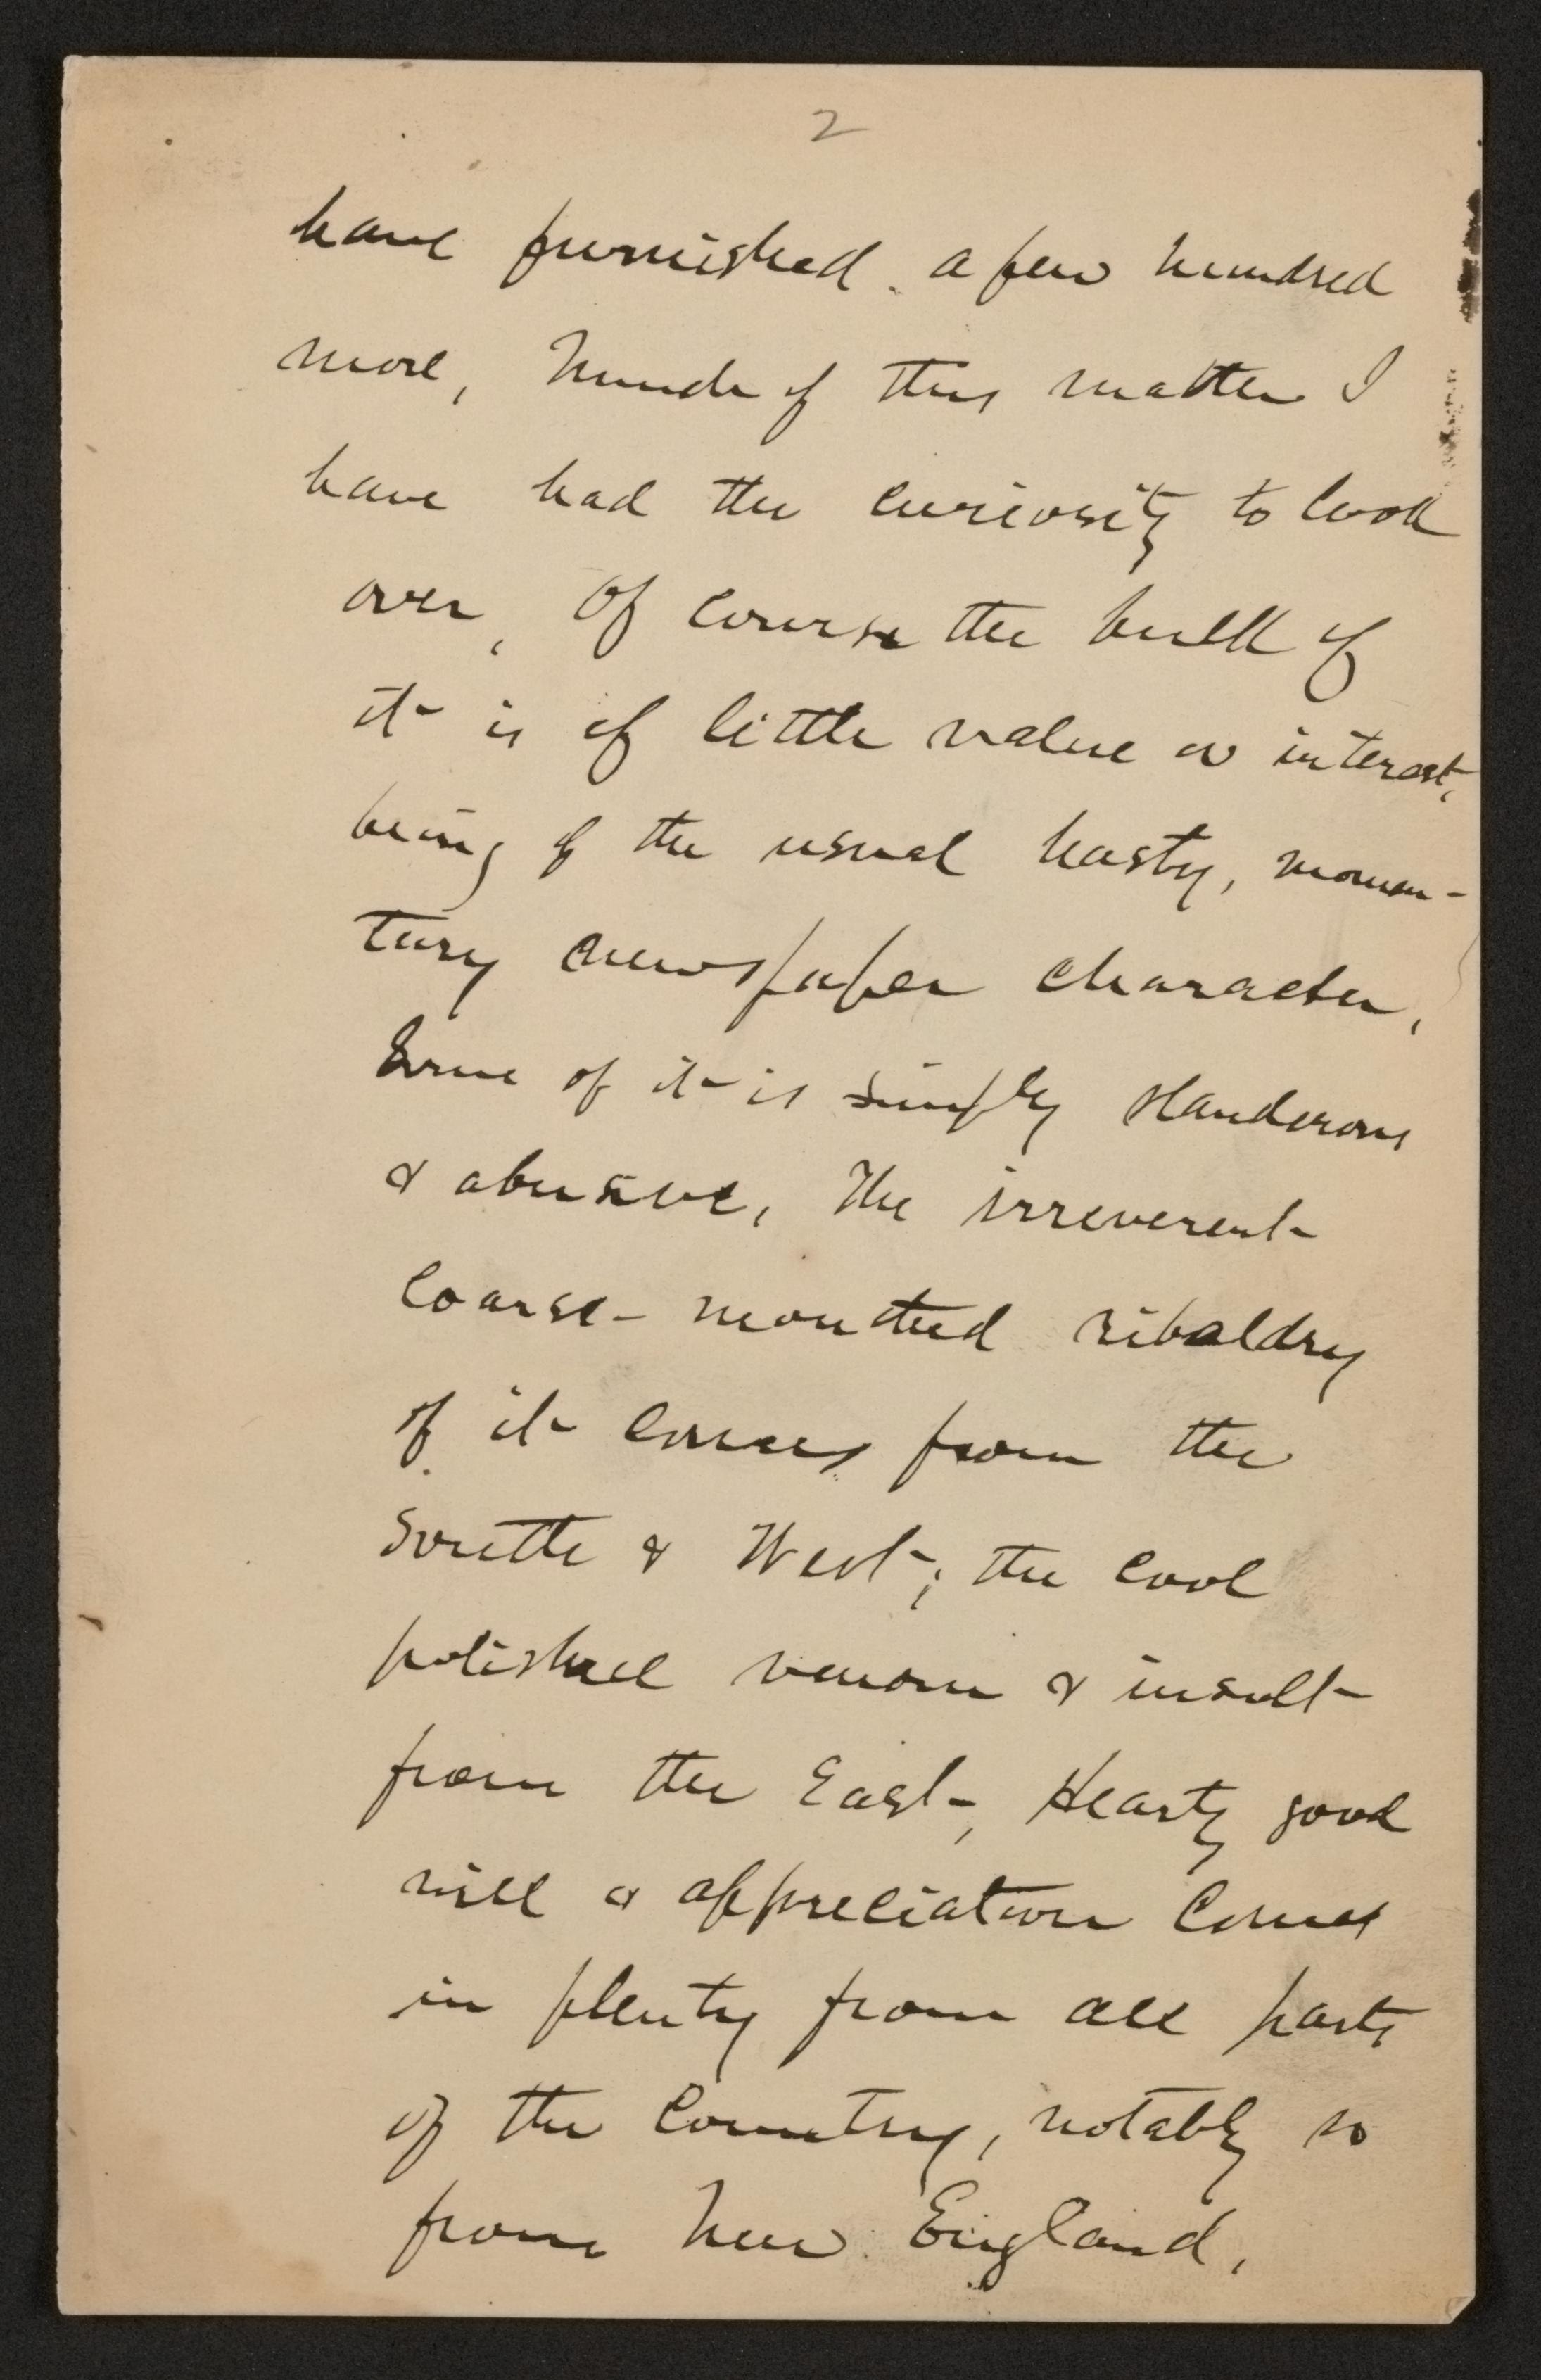 2
have furnished a few hundred
more, Much of this matter I
have had the curiosity to look
over, Of course the bulk of
it is of little value or interest,
being of the usual hasty, momen-
tary newspaper character,
Some of it is simply slanderous
& abusive, The irreverent
coarse-mouthed ribaldry
of it comes from the
South & West; the cool
polished venom & insult
from the East, Hearty good
will & appreciation comes
in plenty from all parts
of the country, notably so
from New England,